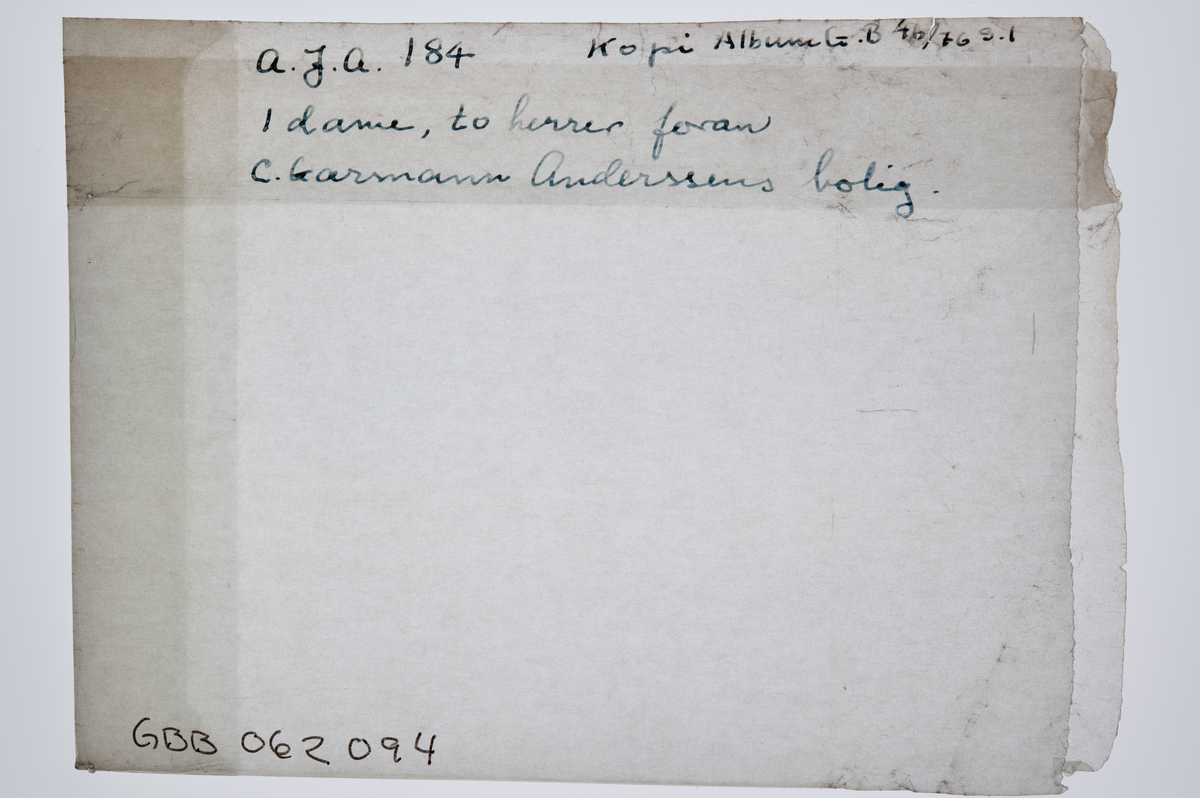 A.J.A. 184 Kopi Album G.B 46/76 s.1
1 dame, to herrer foran
C. Garmann Anderssens bolig.
GBB 062 094